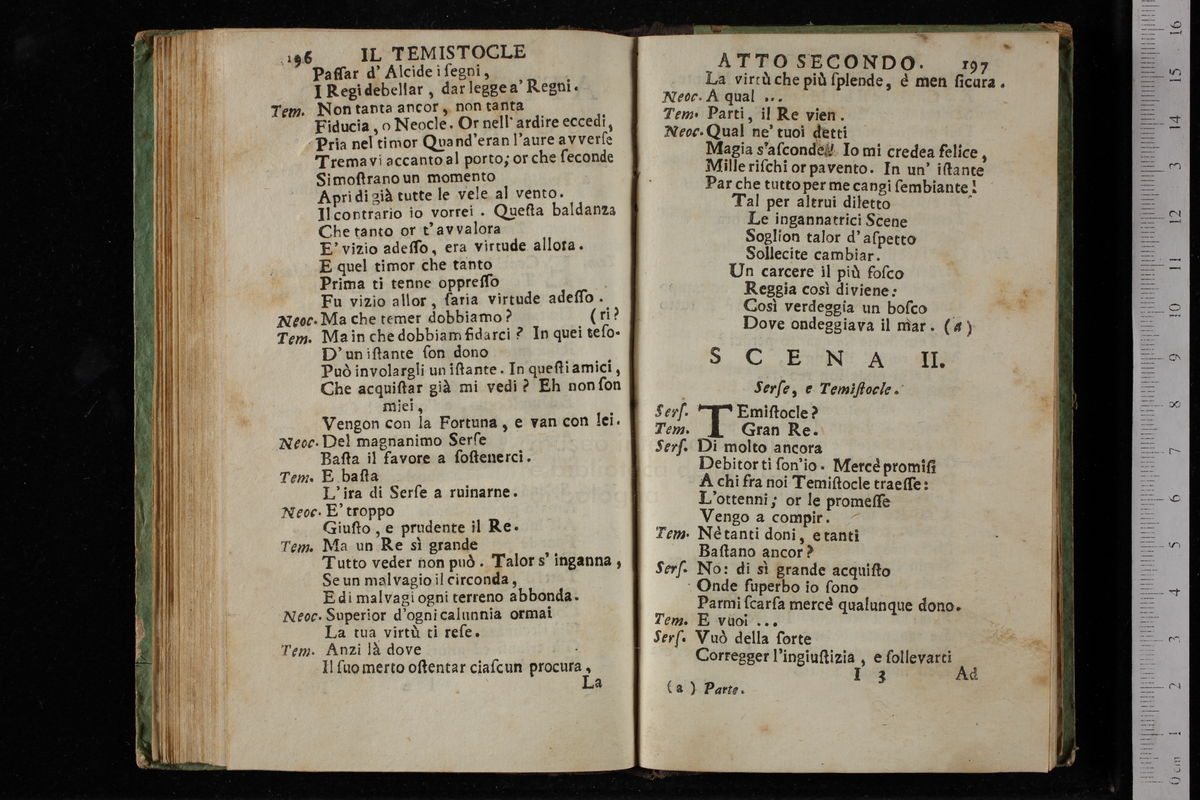 196 IL TEMISTOCLE
Paſſar d' Alcide i ſegni,
I Regi debellar, dar legge a' Regni.
Tem. Non tanta ancor, non tanta
Fiducia, o Neocle. Or nell' ardire eccedi,
Pria nel timor Quand'eran l'aure avverſe
Tremavi accanto al porto; or che ſeconde
Si moſtrano un momento
Apri di già tutte le vele al vento.
Il contrario io vorrei. Queſta baldanza
Che tanto or t'avvalora
E' vizio adeſſo, era virtude allora.
E quel timor che tanto
Prima ti tenne oppreſſo
Fu vizio allor, ſaria virtude adeſſo.
Neoc. Ma che temer dobbiamo? (ri?
Tem. Ma in che dobbiam fidarci? In quei teſo-
D'un iſtante ſon dono
Può involargli un iſtante. In queſti amici,
Che acquiſtar già mi vedi? Eh non ſon
miei,
Vengon con la Fortuna, e van con lei.
Neoc. Del magnanimo Serſe
Baſta il favore a ſoſtenerci.
Tem. E baſta
L'ira di Serſe a ruinarne.
Neoc. E' troppo
Giuſto, e prudente il Re.
Tem. Ma un Re sì grande
Tutto veder non può. Talor s' inganna,
Se un malvagio il circonda,
E di malvagi ogni terreno abbonda.
Neoc. Superior d'ogni calunnia ormai
La tua virtù ti reſe.
Tem. Anzi là dove
Il ſuo merto oſtentar ciaſcun procura,
La
ATTO SECONDO. 197
La virtù che più ſplende, è men ſicura.
Neoc. A qual ...
Tem. Parti, il Re vien.
Neoc. Qual ne' tuoi detti
Magia s'aſconde! Io mi credea felice,
Mille riſchi or pavento. In un' iſtante
Par che tutto per me cangi ſembiante!
Tal per altrui diletto
Le ingannatrici Scene
Soglion talor d'aſpetto
Sollecite cambiar.
Un carcere il più foſco
Reggia così diviene:
Così verdeggia un boſco
Dove ondeggiava il mar. (a)
SCENA II.
Serſe, e Temiſtocle.
Serſ. TEmiſtocle?
Tem. Gran Re.
Serſ. Di molto ancora
Debitor ti ſon'io. Mercè promiſi
A chi fra noi Temiſtocle traeſſe:
L'ottenni; or le promeſſe
Vengo a compir.
Tem. Nè tanti doni, e tanti
Baſtano ancor?
Serſ. No: di sì grande acquiſto
Onde ſuperbo io ſono
Parmi ſcarſa mercè qualunque dono.
Tem. E vuoi ...
Serſ. Vuò della ſorte
Corregger l'ingiuſtizia, e ſollevarti
I 3 Ad
(a) Parte.